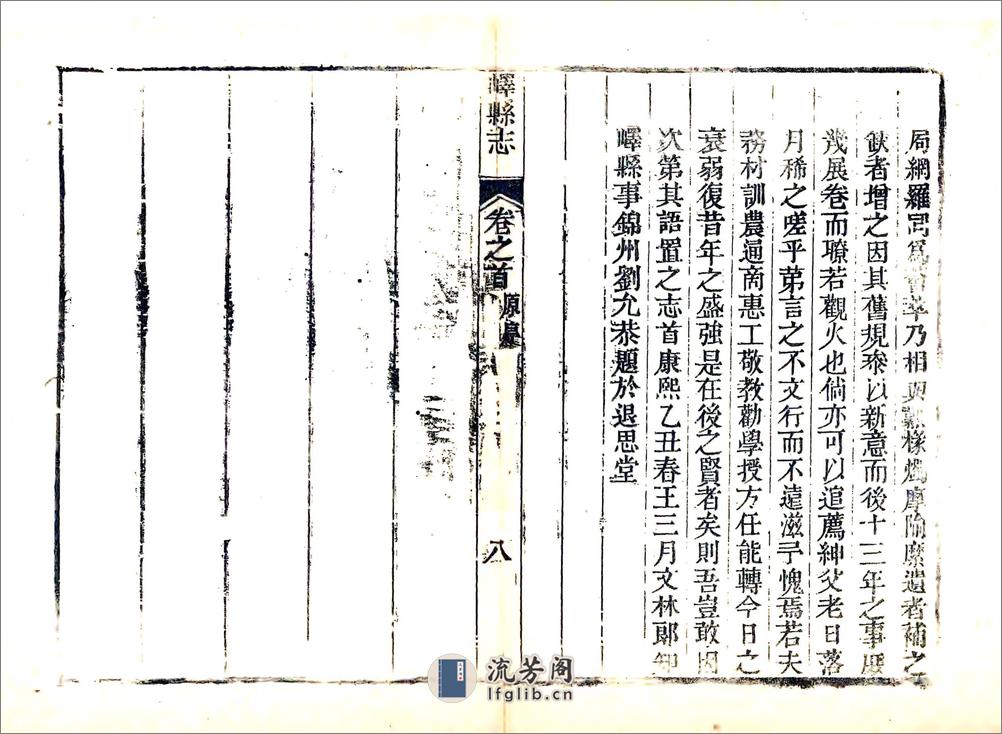 局網羅同爲會萃乃相與燃椽燭摩隃麋遺者補之
欽者增之因其舊規叅以新意而後十三年之事庶
幾展卷而瞭若觀火也倘亦可以追薦紳父老日落
月稀之嗟乎第言之不文行而不遠滋予愧焉若夫
務材訓農通商惠工敬教勸學授方任能轉今日之
衰弱復昔年之盛強是在後之賢者矣則吾豈敢因
次第其語置之志首康熙乙丑春王三月文林郎知
嶧縣事錦州劉允恭題於退思堂
嶧縣志
卷之首
原序
八
流芳阁
lfglib.cn